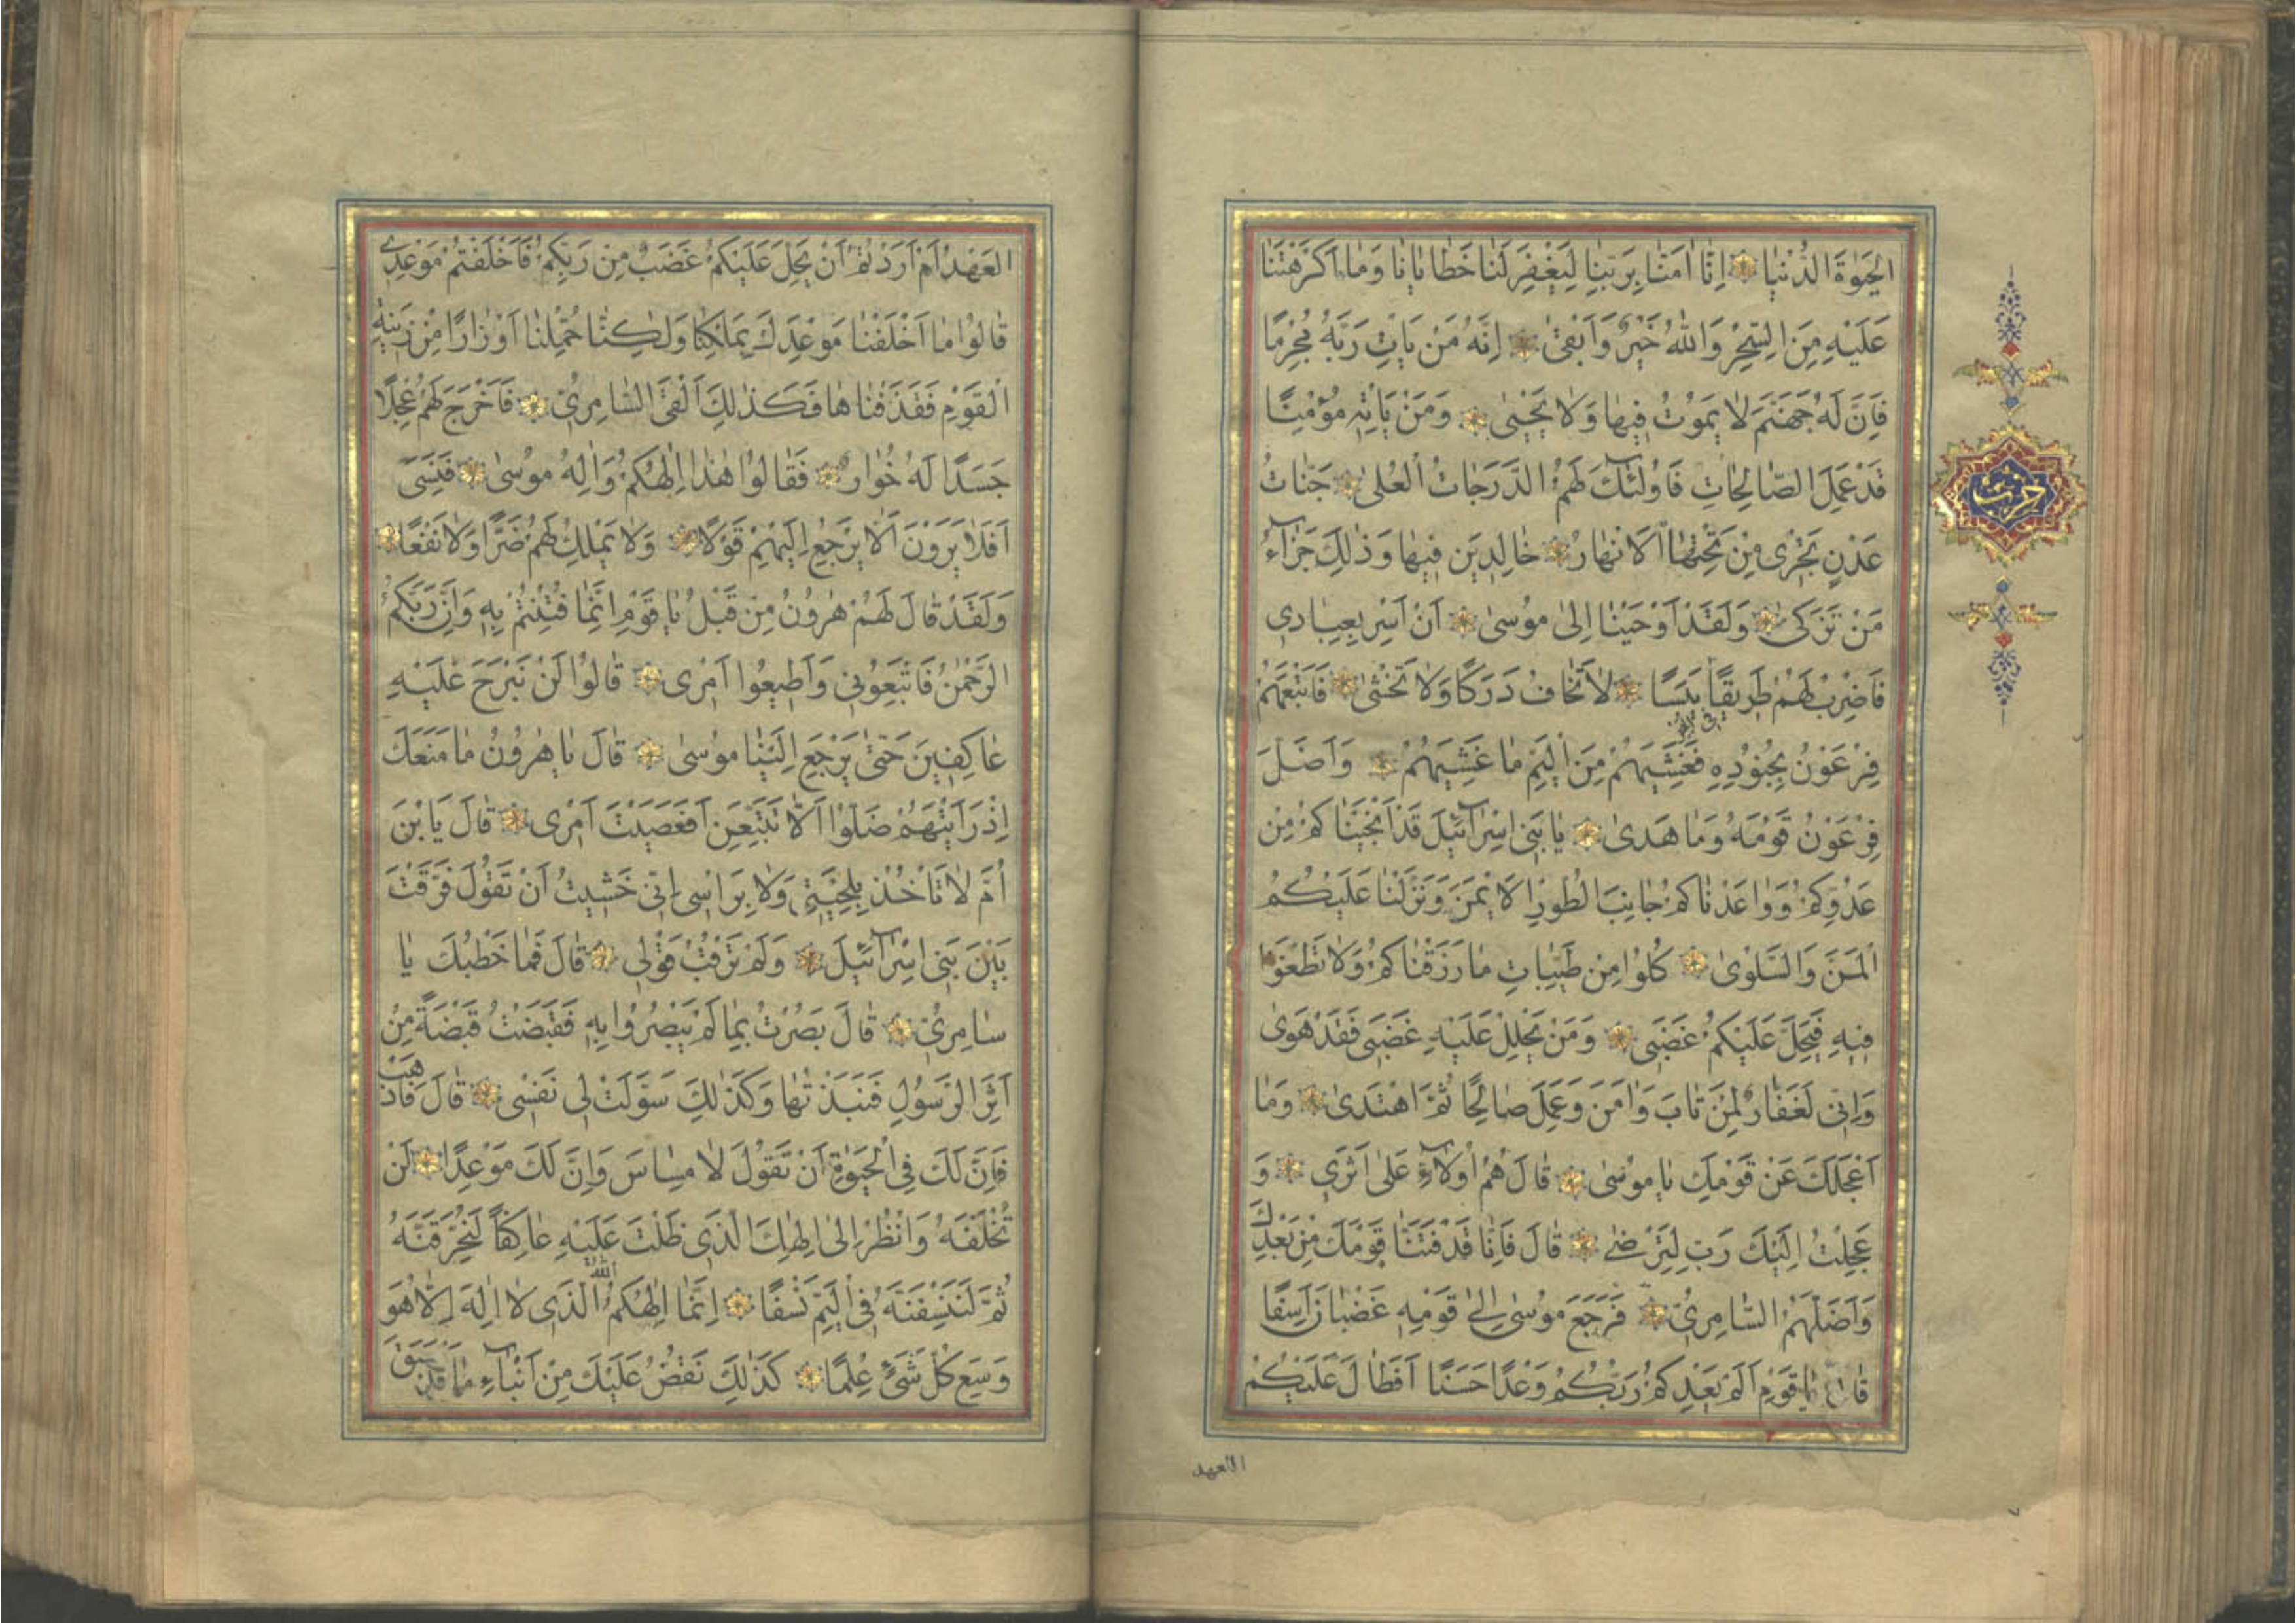 الحَيٰوةَ الدُّنْيٰا اِنّٰا اٰمَنّٰا بِرَبِّنٰا لِيَغْفِرَ لَنٰا خَطٰايٰانٰا وَمٰا اَكْرَهْتَنٰا
عَلَيْهِ مِنَ السِّحْرِ وَاللّٰهُ خَيْرٌ وَاَبْقىٰ اِنَّهُ مَنْ يَاْتِ رَبَّهُ مُجْرِمًا
فَاِنَّ لَهُ جَهَنَّمَ لٰا يَمُوتُ فِيهٰا وَلٰا يَحْيىٰ وَمَنْ يَاْتِهِ مُؤْمِنًا
قَدْ عَمِلَ الصّٰالِحٰاتِ فَاُولٰئِكَ لَهُمُ الدَّرَجٰاتُ الْعُلىٰ جَنّٰاتُ
عَدْنٍ تَجْرِى مِنْ تَحْتِهَا الْاَنْهٰارُ خٰالِدِينَ فِيهٰا وَذٰلِكَ جَزٰآءُ
مَنْ تَزَكّىٰ وَلَقَدْ اَوْحَيْنٰا اِلىٰ مُوسىٰ اَنْ اَسْرِ بِعِبٰادِى
فَاضْرِبْ لَهُمْ طَرِيقًا يَبَسًا لٰا تَخٰافُ دَرَكًا وَلٰا تَخْشىٰ فَاَتْبَعَهُمْ
فِرْعَوْنُ بِجُنُودِهِ فَغَشِيَهُمْ مِنَ الْيَمِّ مٰا غَشِيَهُمْ وَاَضَلَّ
فِرْعَوْنُ قَوْمَهُ وَمٰا هَدىٰ يٰا بَنِى اِسْرٰآئِيلَ قَدْ اَنْجَيْنٰاكُمْ مِنْ
عَدُوِّكُمْ وَوٰاعَدْنٰاكُمْ جٰانِبَ الطُّورِ الْاَيْمَنَ وَنَزَّلْنٰا عَلَيْكُمُ
الْمَنَّ وَالسَّلْوىٰ كُلُوا مِنْ طَيِّبٰاتِ مٰا رَزَقْنٰاكُمْ وَلٰا تَطْغَوْا
فِيهِ فَيَحِلَّ عَلَيْكُمْ غَضَبِى وَمَنْ يَحْلِلْ عَلَيْهِ غَضَبِى فَقَدْ هَوىٰ
وَاِنِّى لَغَفّٰارٌ لِمَنْ تٰابَ وَاٰمَنَ وَعَمِلَ صٰالِحًا ثُمَّ اهْتَدىٰ وَمٰا
اَعْجَلَكَ عَنْ قَوْمِكَ يٰا مُوسىٰ قٰالَ هُمْ اُولٰآءِ عَلىٰ اَثَرِى وَ
عَجِلْتُ اِلَيْكَ رَبِّ لِتَرْضىٰ قٰالَ فَاِنّٰا قَدْ فَتَنّٰا قَوْمَكَ مِنْ بَعْدِكَ
وَاَضَلَّهُمُ السّٰامِرِىُّ فَرَجَعَ مُوسىٰ اِلىٰ قَوْمِهِ غَضْبٰانَ اَسِفًا
قٰالَ يٰا قَوْمِ اَلَمْ يَعِدْكُمْ رَبُّكُمْ وَعْدًا حَسَنًا اَفَطٰالَ عَلَيْكُمُ
العهد
حزب
العَهْدُ اَمْ اَرَدْتُمْ اَنْ يَحِلَّ عَلَيْكُمْ غَضَبٌ مِنْ رَبِّكُمْ فَاَخْلَفْتُمْ مَوْعِدِى
قٰالُوا مٰا اَخْلَفْنٰا مَوْعِدَكَ بِمَلْكِنٰا وَلٰكِنّٰا حُمِّلْنٰا اَوْزٰارًا مِنْ زِينَةِ
الْقَوْمِ فَقَذَفْنٰاهٰا فَكَذٰلِكَ اَلْقَى السّٰامِرِىُّ فَاَخْرَجَ لَهُمْ عِجْلًا
جَسَدًا لَهُ خُوٰارٌ فَقٰالُوا هٰذٰا اِلٰهُكُمْ وَاِلٰهُ مُوسىٰ فَنَسِىَ
اَفَلٰا يَرَوْنَ اَلّٰا يَرْجِعُ اِلَيْهِمْ قَوْلًا وَلٰا يَمْلِكُ لَهُمْ ضَرًّا وَلٰا نَفْعًا
وَلَقَدْ قٰالَ لَهُمْ هٰرُونُ مِنْ قَبْلُ يٰا قَوْمِ اِنَّمٰا فُتِنْتُمْ بِهِ وَاِنَّ رَبَّكُمُ
الرَّحْمٰنُ فَاتَّبِعُونِى وَاَطِيعُوا اَمْرِى قٰالُوا لَنْ نَبْرَحَ عَلَيْهِ
عٰاكِفِينَ حَتّىٰ يَرْجِعَ اِلَيْنٰا مُوسىٰ قٰالَ يٰا هٰرُونُ مٰا مَنَعَكَ
اِذْ رَاَيْتَهُمْ ضَلُّوا اَلّٰا تَتَّبِعَنِ اَفَعَصَيْتَ اَمْرِى قٰالَ يَا بْنَ
اُمَّ لٰا تَاْخُذْ بِلِحْيَتِى وَلٰا بِرَاْسِى اِنِّى خَشِيتُ اَنْ تَقُولَ فَرَّقْتَ
بَيْنَ بَنِى اِسْرٰآئِيلَ وَلَمْ تَرْقُبْ قَوْلِى قٰالَ فَمٰا خَطْبُكَ يٰا
سٰامِرِىُّ قٰالَ بَصُرْتُ بِمٰا لَمْ يَبْصُرُوا بِهِ فَقَبَضْتُ قَبْضَةً مِنْ
اَثَرِ الرَّسُولِ فَنَبَذْتُهٰا وَكَذٰلِكَ سَوَّلَتْ لِى نَفْسِى قٰالَ فَاذْهَبْ
فَاِنَّ لَكَ فِى الْحَيٰوةِ اَنْ تَقُولَ لٰا مِسٰاسَ وَاِنَّ لَكَ مَوْعِدًا لَنْ
تُخْلَفَهُ وَانْظُرْ اِلىٰ اِلٰهِكَ الَّذِى ظَلْتَ عَلَيْهِ عٰاكِفًا لَنُحَرِّقَنَّهُ
ثُمَّ لَنَنْسِفَنَّهُ فِى الْيَمِّ نَسْفًا اِنَّمٰا اِلٰهُكُمُ اللّٰهُ الَّذِى لٰا اِلٰهَ اِلّٰا هُوَ
وَسِعَ كُلَّ شَىْءٍ عِلْمًا كَذٰلِكَ نَقُصُّ عَلَيْكَ مِنْ اَنْبٰآءِ مٰا قَدْ سَبَقَ